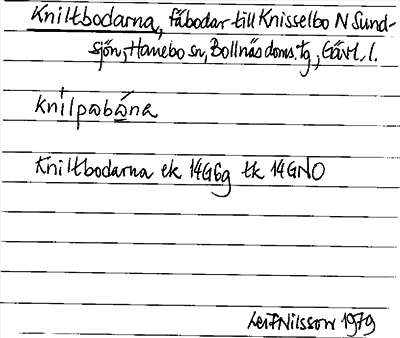 Kniltbodarna, fäbodar till Knisselbo N Sund-
sjön, Hanebo sn, Bollnäs doms. tg, Gävl. l.
knílpabána
Kniltbodarna ek 14G6g tk 14GNO
Leif Nilsson 1979